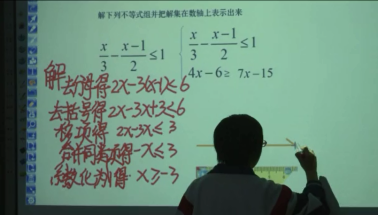 解下列不等式组并把解集在数轴上表示出来
x/3 - (x-1)/2 ≤ 1
x/3 - (x-1)/2 ≤ 1
4x-6≥ 7x-15
解 去分母得 2x-3(x-1)≤6
去括号得 2x-3x+3≤6
移项得 2x-3x≤3
合并同类项得 -x≤3
系数化为1得 x≥-3